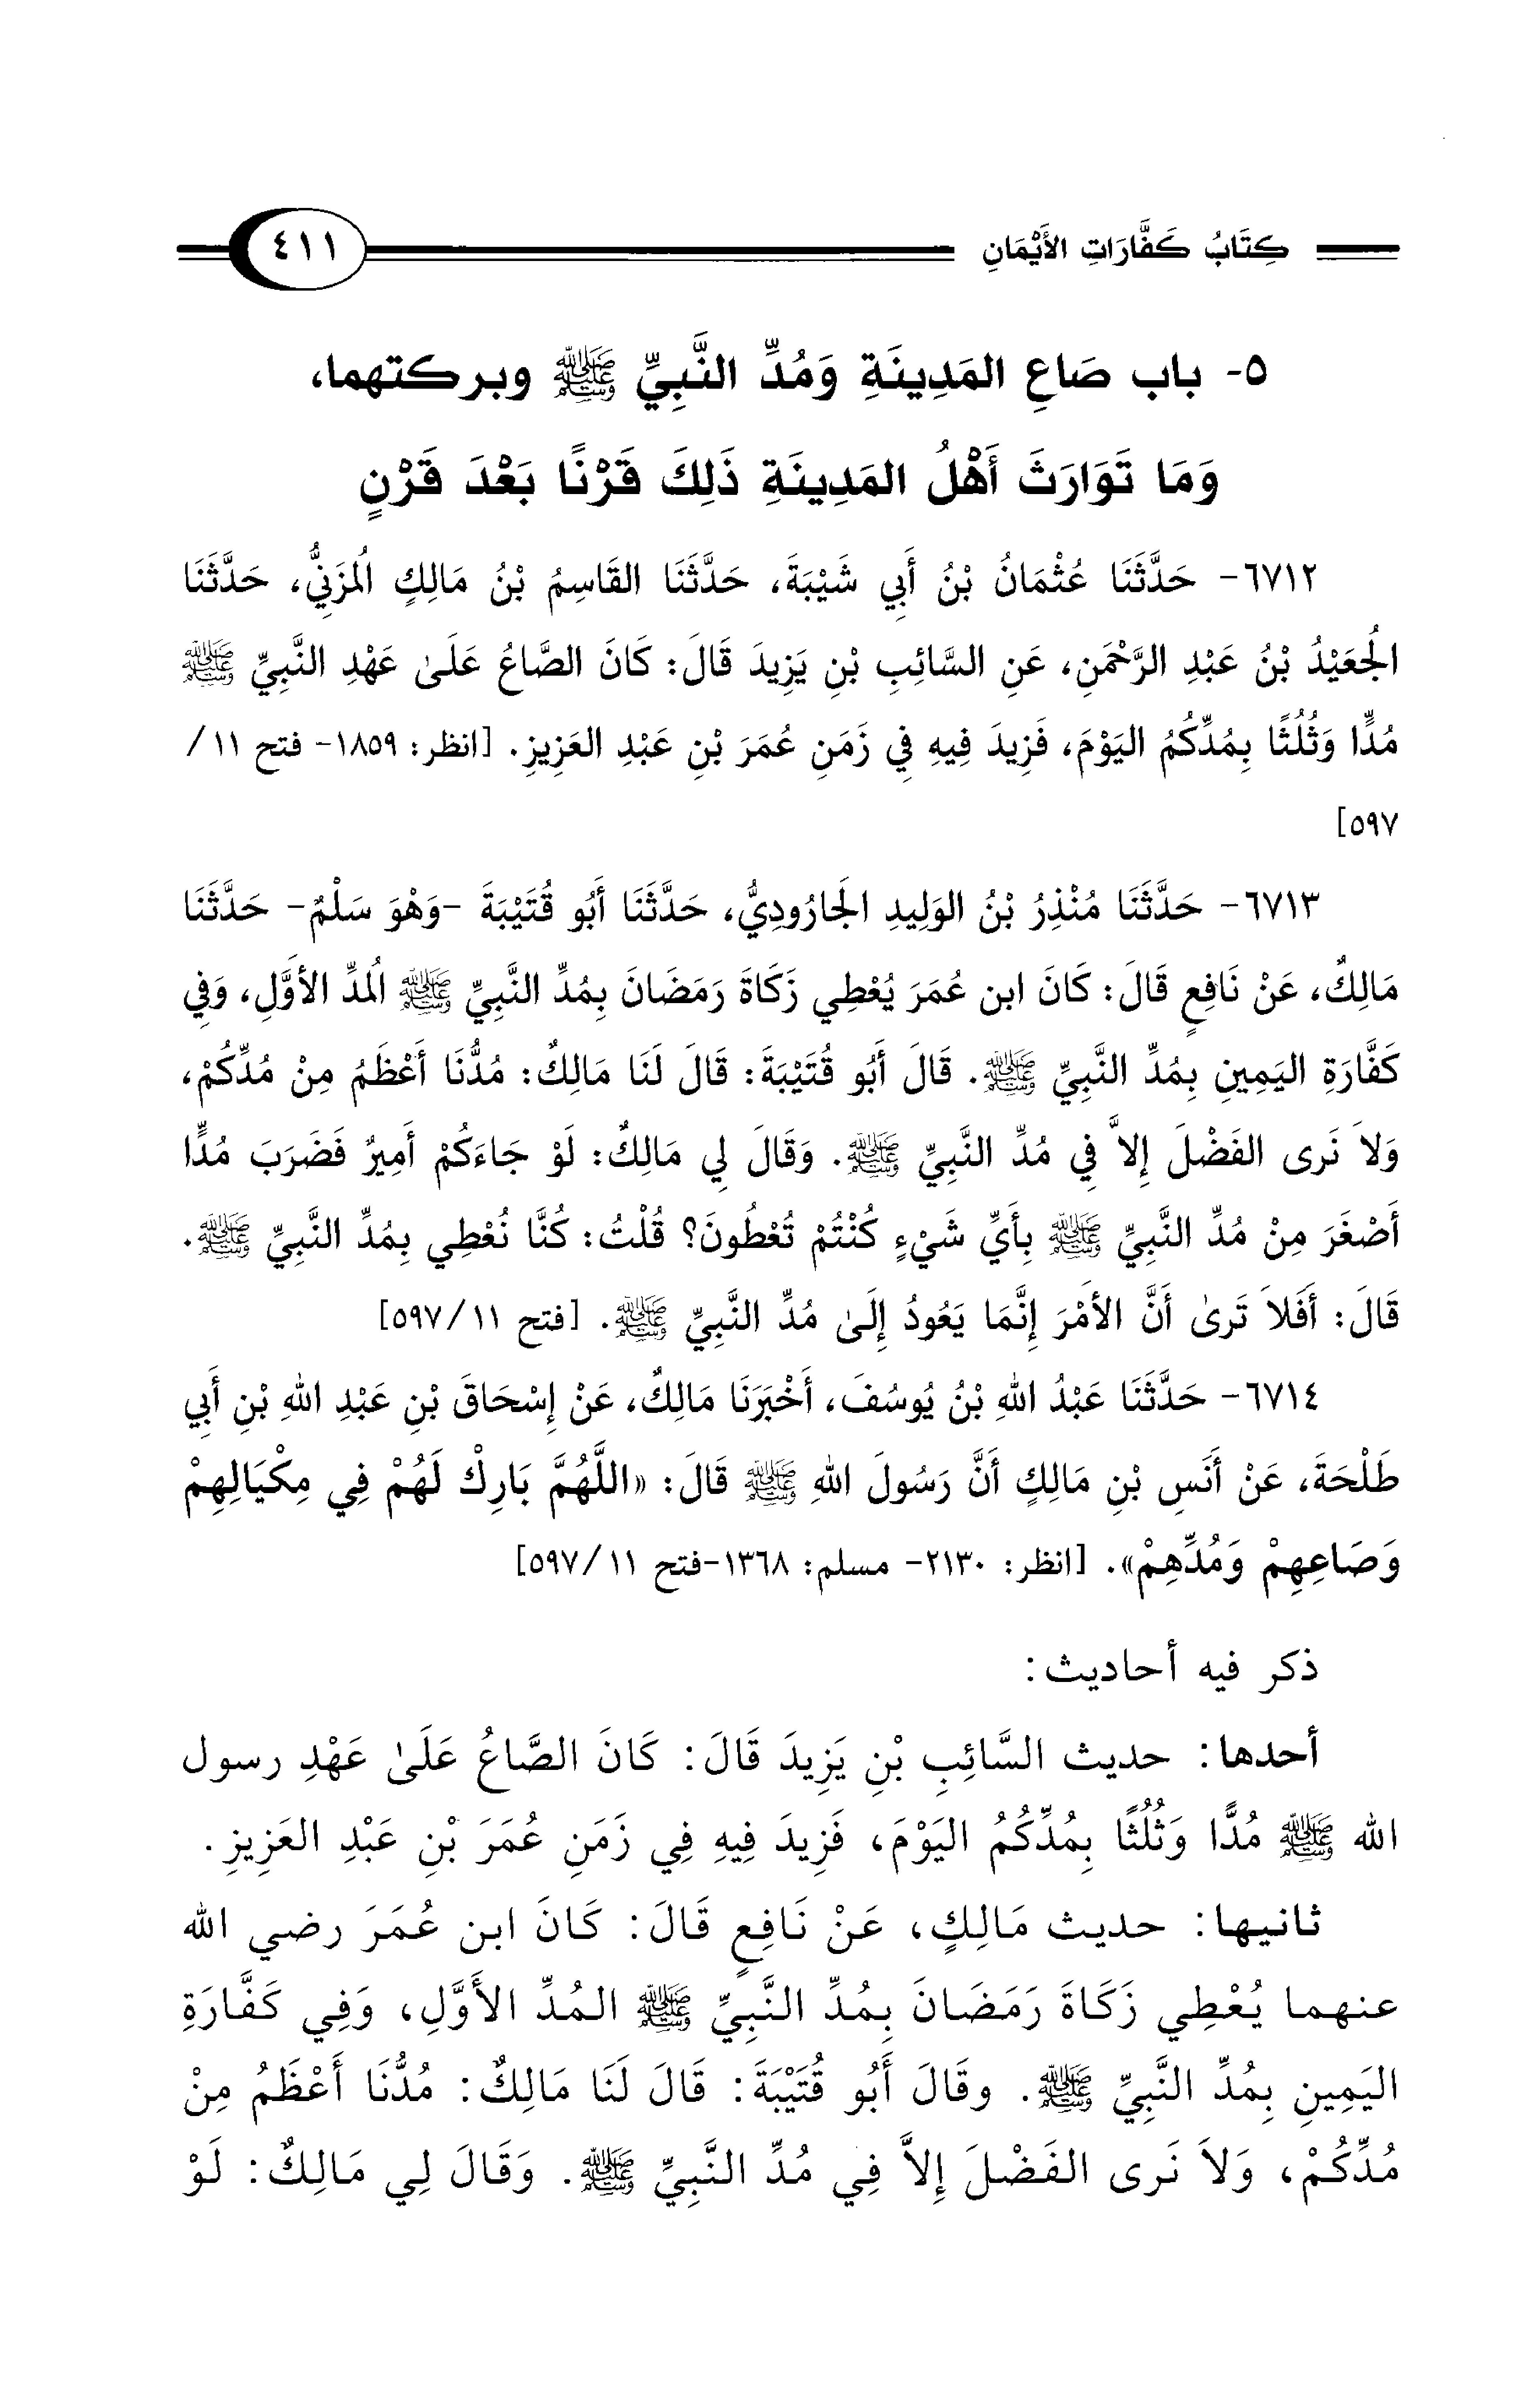 كِتَابُ كَفَّارَاتِ الأَيْمَانِ ٤١١
٥- باب صَاعِ المَدِينَةِ وَمُدِّ النَّبِيِّ ﷺ وبركتهما،
وَمَا تَوَارَثَ أَهْلُ المَدِينَةِ ذَلِكَ قَرْنًا بَعْدَ قَرْنٍ
٦٧١٢- حَدَّثَنَا عُثْمَانُ بْنُ أَبِي شَيْبَةَ، حَدَّثَنَا القَاسِمُ بْنُ مَالِكٍ الُمزَنِيُّ، حَدَّثَنَا
الُجعَيْدُ بْنُ عَبْدِ الرَّحْمَنِ، عَنِ السَّائِبِ بْنِ يَزِيدَ قَالَ: كَانَ الصَّاعُ عَلَىٰ عَهْدِ النَّبِيِّ ﷺ
مُدًّا وَثُلُثًا بِمُدِّكُمُ اليَوْمَ، فَزِيدَ فِيهِ فِي زَمَنِ عُمَرَ بْنِ عَبْدِ العَزِيزِ. [انظر: ١٨٥٩- فتح ١١/
٥٩٧]
٦٧١٣- حَدَّثَنَا مُنْذِرُ بْنُ الوَلِيدِ الَجارُودِيُّ، حَدَّثَنَا أَبُو قُتَيْبَةَ -وَهْوَ سَلْمٌ- حَدَّثَنَا
مَالِكٌ، عَنْ نَافِعٍ قَالَ: كَانَ ابن عُمَرَ يُعْطِي زَكَاةَ رَمَضَانَ بِمُدِّ النَّبِيِّ ﷺ الُمدِّ الأَوَّلِ، وَفِي
كَفَّارَةِ اليَمِينِ بِمُدِّ النَّبِيِّ ﷺ. قَالَ أَبُو قُتَيْبَةَ: قَالَ لَنَا مَالِكٌ: مُدُّنَا أَعْظَمُ مِنْ مُدِّكُمْ،
وَلاَ نَرى الفَضْلَ إِلاَّ فِي مُدِّ النَّبِيِّ ﷺ. وَقَالَ لِي مَالِكٌ: لَوْ جَاءَكُمْ أَمِيرٌ فَضَرَبَ مُدًّا
أَصْغَرَ مِنْ مُدِّ النَّبِيِّ ﷺ بِأَيِّ شَيْءٍ كُنْتُمْ تُعْطُونَ؟ قُلْتُ: كُنَّا نُعْطِي بِمُدِّ النَّبِيِّ ﷺ.
قَالَ: أَفَلاَ تَرىٰ أَنَّ الأَمْرَ إِنَّمَا يَعُودُ إِلَىٰ مُدِّ النَّبِيِّ ﷺ. [فتح ١١/٥٩٧]
٦٧١٤- حَدَّثَنَا عَبْدُ اللهِ بْنُ يُوسُفَ، أَخْبَرَنَا مَالِكٌ، عَنْ إِسْحَاقَ بْنِ عَبْدِ اللهِ بْنِ أَبِي
طَلْحَةَ، عَنْ أَنَسِ بْنِ مَالِكٍ أَنَّ رَسُولَ اللهِ ﷺ قَالَ: «اللَّهُمَّ بَارِكْ لَهُمْ فِي مِكْيَالِهِمْ
وَصَاعِهِمْ وَمُدِّهِمْ». [انظر: ٢١٣٠- مسلم: ١٣٦٨-فتح ١١/٥٩٧]
ذكر فيه أحاديث:
أحدها: حديث السَّائِبِ بْنِ يَزِيدَ قَالَ: كَانَ الصَّاعُ عَلَىٰ عَهْدِ رسول
الله ﷺ مُدًّا وَثُلُثًا بِمُدِّكُمُ اليَوْمَ، فَزِيدَ فِيهِ فِي زَمَنِ عُمَرَ بْنِ عَبْدِ العَزِيزِ.
ثانيها: حديث مَالِكٍ، عَنْ نَافِعٍ قَالَ: كَانَ ابن عُمَرَ رضي الله
عنهما يُعْطِي زَكَاةَ رَمَضَانَ بِمُدِّ النَّبِيِّ ﷺ المُدِّ الأَوَّلِ، وَفِي كَفَّارَةِ
اليَمِينِ بِمُدِّ النَّبِيِّ ﷺ. وقَالَ أَبُو قُتَيْبَةَ: قَالَ لَنَا مَالِكٌ: مُدُّنَا أَعْظَمُ مِنْ
مُدِّكُمْ، وَلاَ نَرى الفَضْلَ إِلاَّ فِي مُدِّ النَّبِيِّ ﷺ. وَقَالَ لِي مَالِكٌ: لَوْ